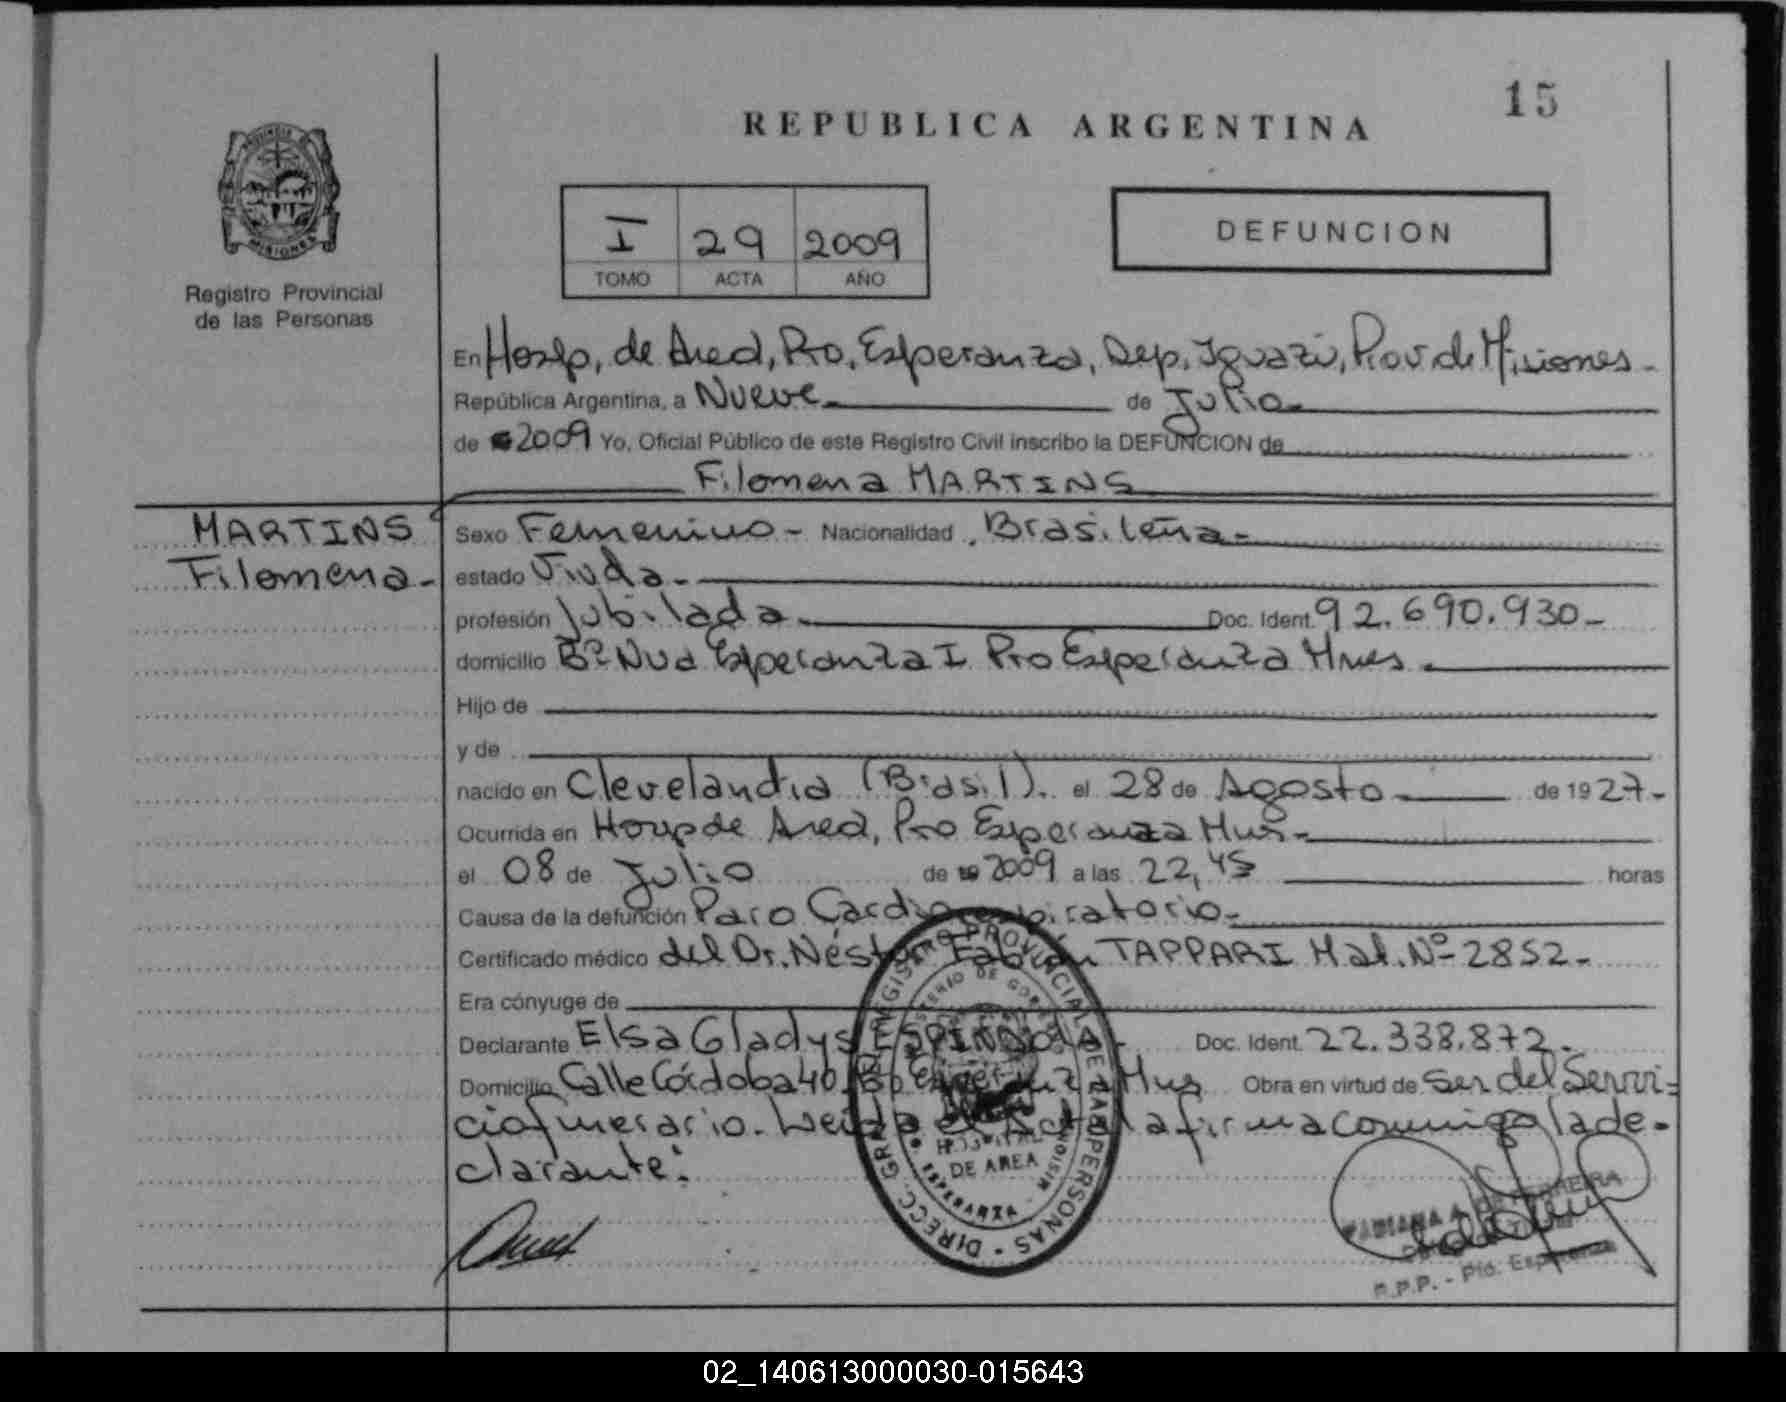 15
REPUBLICA ARGENTINA
PROVINCIA DE MISIONES
Registro Provincial
de las Personas
I 29 2009
TOMO ACTA AÑO
DEFUNCION
En Hosp, de Area, Pto, Esperanza, Dep, Iguazú, Prov de Misiones -
República Argentina, a Nueve de Julio
de 2009 Yo, Oficial Público de este Registro Civil inscribo la DEFUNCION de
Filomena MARTINS
MARTINS
Filomena -
Sexo Femenino - Nacionalidad Brasileña -
estado Viuda -
profesión Jubilada Doc. Ident. 92.690.930-
domicilio Bº Nva Esperanza I Pto Esperanza Mnes
Hijo de
y de
nacido en Clevelandia (Brasil). el 28 de Agosto de 1927-
Ocurrida en Hosp de Area, Pto Esperanza Mnes-
el 08 de Julio de 2009 a las 22,45 horas
Causa de la defunción Paro Cardiorespiratorio-
Certificado médico del Dr. Néstor Fabián TAPPARI Mat. Nº 2852-
Era cónyuge de
Declarante Elsa Gladys ESPINDOLA- Doc. Ident. 22.338.872-
Domicilio Calle Córdoba 40 Pto Esperanza Mnes Obra en virtud de ser del Servi=
cio funerario. Leida el Acta la firma conmigo la de-
clarante:
REGISTRO PROVINCIAL DE LAS PERSONAS - DIRECC. GRAL.
MINISTERIO DE GOBIERNO
HOSPITAL
DE AREA
ESPERANZA - MISIONES
FABIANA A. DE FERREIRA
R.P.P. - Pto. Esperanza
02_140613000030-015643